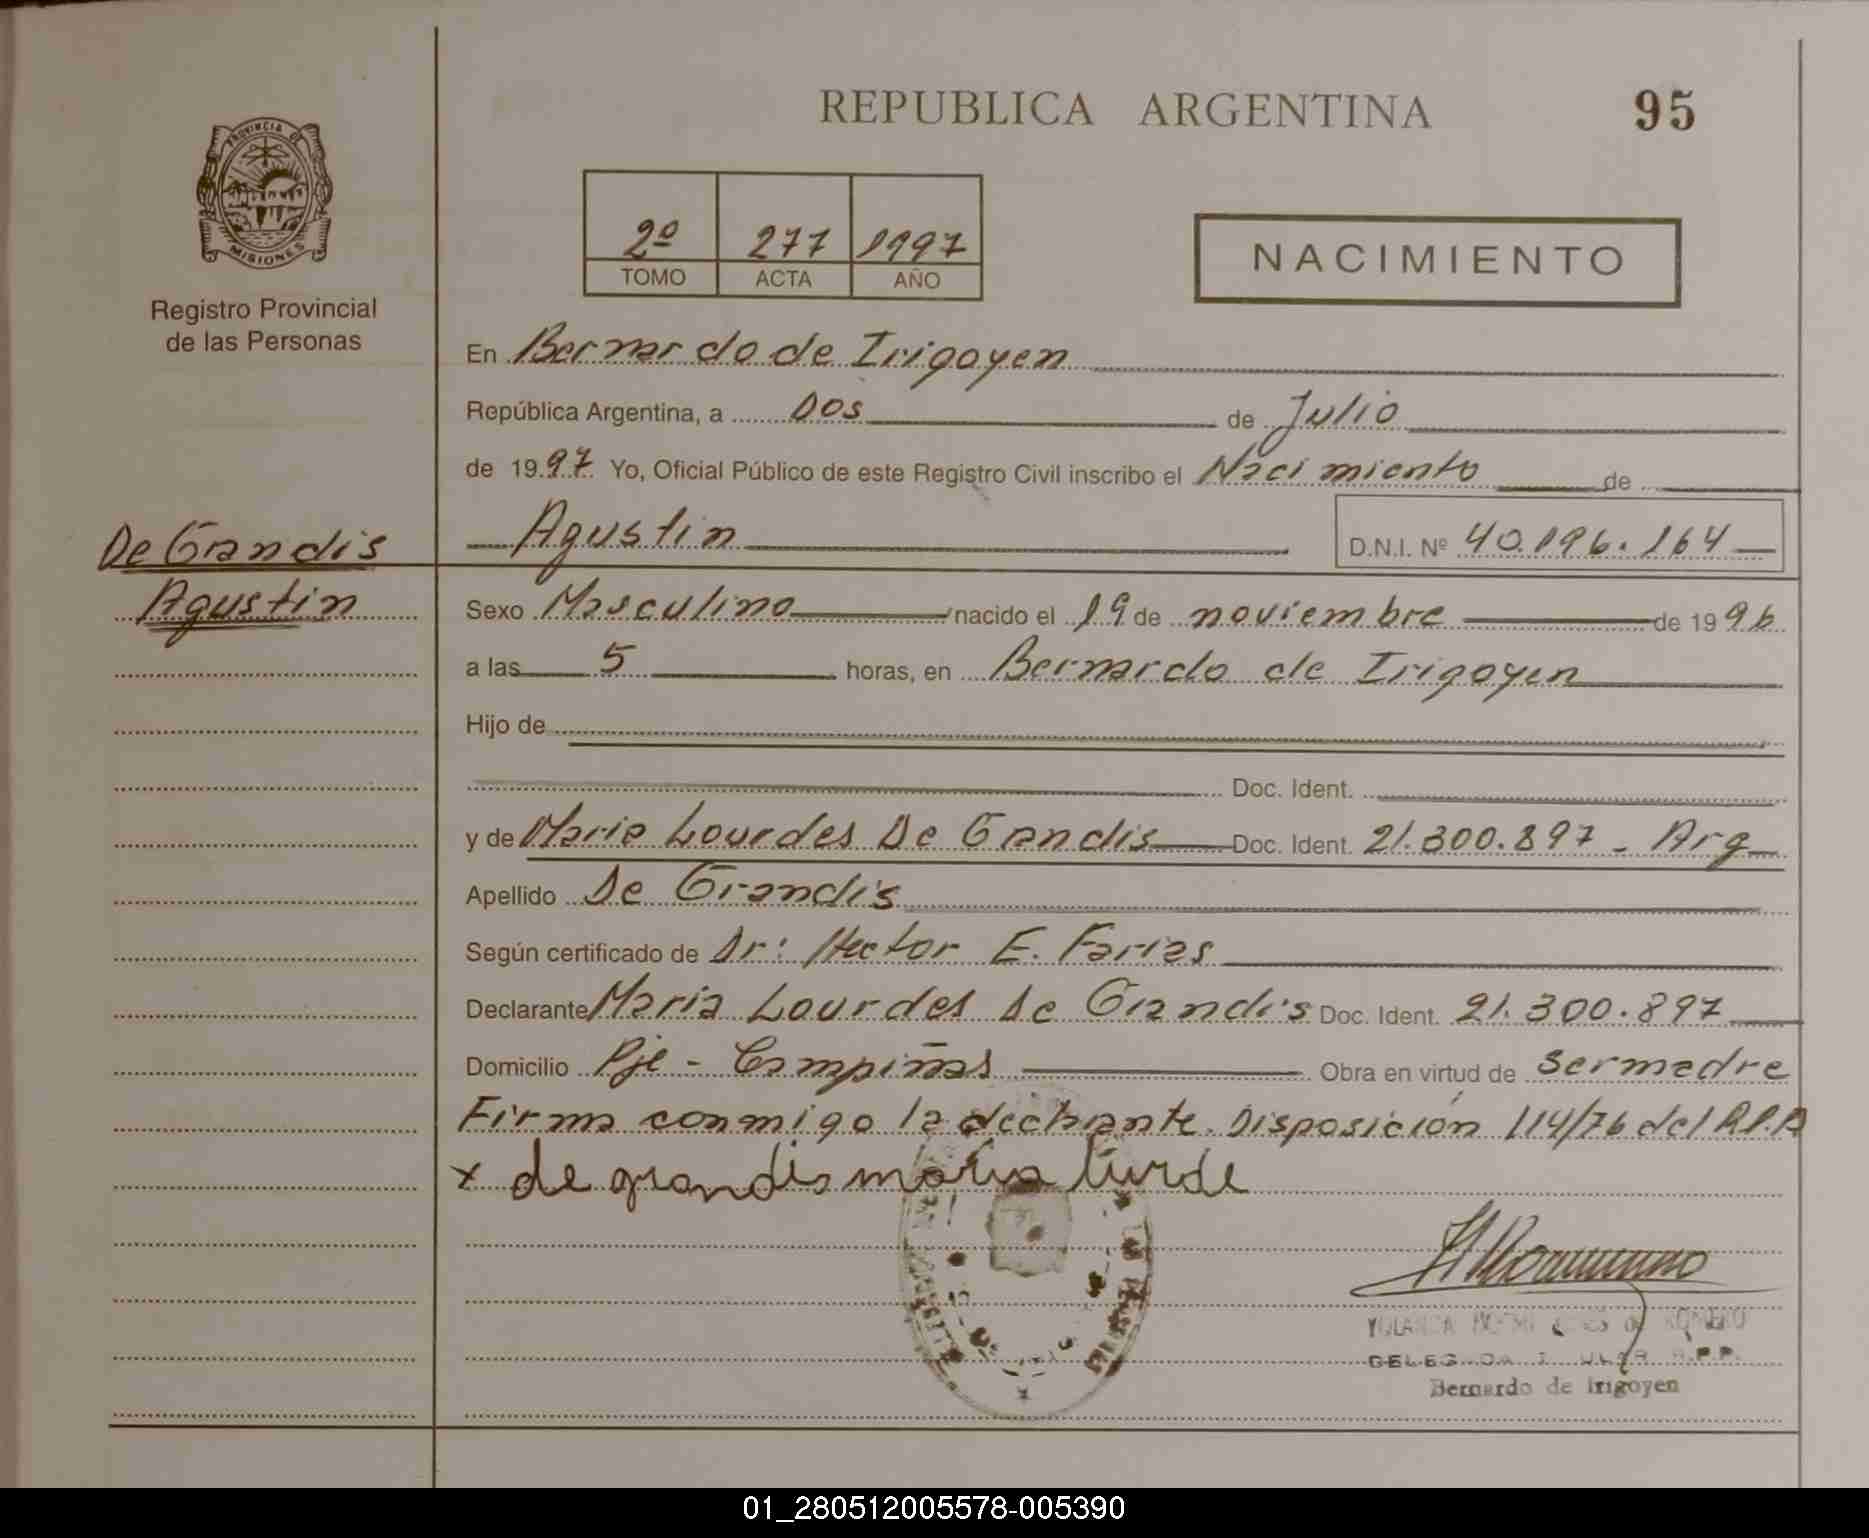 REPUBLICA ARGENTINA
95
PROVINCIA DE
MISIONES
Registro Provincial
de las Personas
2º 277 1997
TOMO ACTA AÑO
NACIMIENTO
En Bernardo de Irigoyen
República Argentina, a Dos de Julio
de 1997 Yo, Oficial Público de este Registro Civil inscribo el Nacimiento de
De Grandis
Agustin
Agustin D.N.I. Nº 40.196.164
Sexo Masculino nacido el 19 de noviembre de 1996
a las 5 horas, en Bernardo de Irigoyen
Hijo de
Doc. Ident.
y de Maria Lourdes De Grandis Doc. Ident. 21.300.897 - Arg
Apellido De Grandis
Según certificado de Dr: Hector E. Farias
Declarante Maria Lourdes De Grandis Doc. Ident. 21.300.897
Domicilio Pje - Campiñas Obra en virtud de ser madre
Firma conmigo la declarante. Disposición 114/76 del R.P.P
x de grandis maria lurde
ROMERO
Bernardo de Irigoyen
01_280512005578-005390